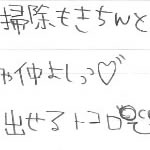 掃除もきちんと
仲よしっ♡
出せるトコロ